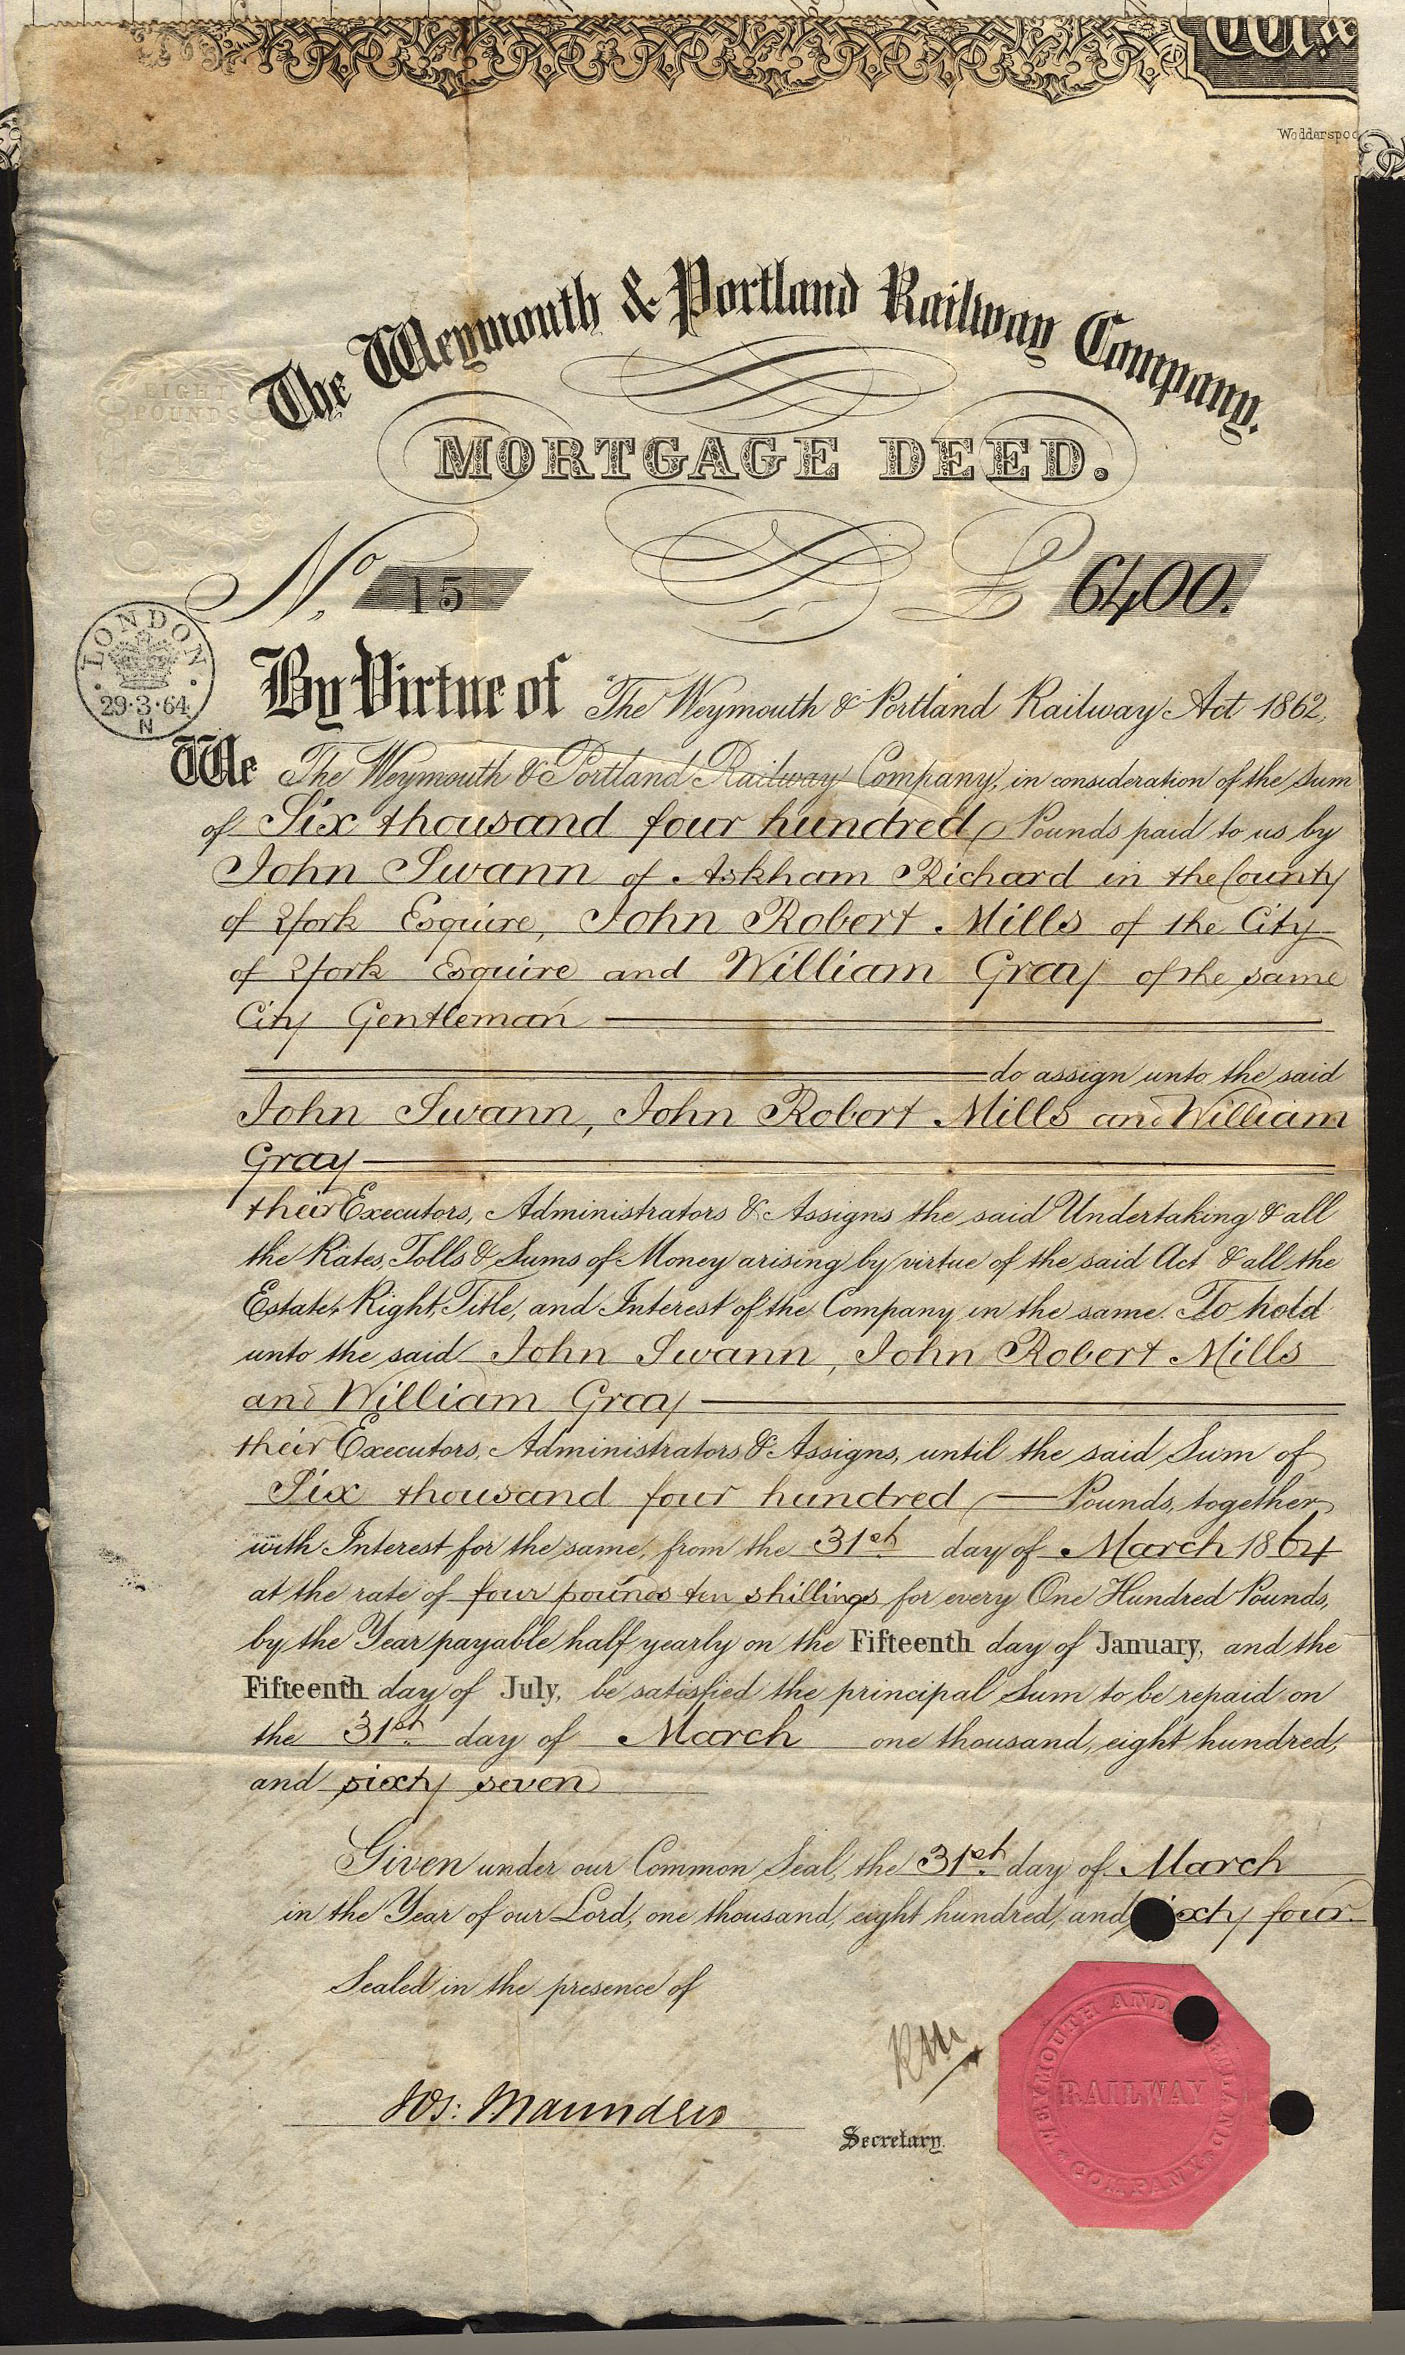 Wodderspoo
The Weymouth & Portland Railway Company.
EIGHT
POUNDS
MORTGAGE DEED.
No. 15 £ 6400.
LONDON
29·3·64
N
By Virtue of The Weymouth & Portland Railway Act 1862,
We The Weymouth & Portland Railway Company, in consideration of the Sum
of Six thousand four hundred Pounds paid to us by
John Swann of Askham Richard in the County
of York Esquire, John Robert Mills of the City
of York Esquire and William Gray of the same
City Gentleman
do assign unto the said
John Swann, John Robert Mills and William
Gray
their Executors, Administrators & Assigns the said Undertaking & all
the Rates, Tolls & Sums of Money arising by virtue of the said Act & all the
Estate, Right, Title, and Interest of the Company in the same. To hold
unto the said John Swann, John Robert Mills
and William Gray
their Executors, Administrators & Assigns, until the said Sum of
Six thousand four hundred Pounds, together
with Interest for the same, from the 31st day of March 1864
at the rate of four pounds ten shillings for every One Hundred Pounds,
by the Year payable half yearly on the Fifteenth day of January, and the
Fifteenth day of July, be satisfied the principal Sum to be repaid on
the 31st day of March one thousand, eight hundred,
and sixty seven
Given under our Common Seal, the 31st day of March
in the Year of our Lord, one thousand, eight hundred, and sixty four.
Sealed in the presence of
Jos: Maunders
Secretary.
WEYMOUTH AND PORTLAND
RAILWAY
COMPANY